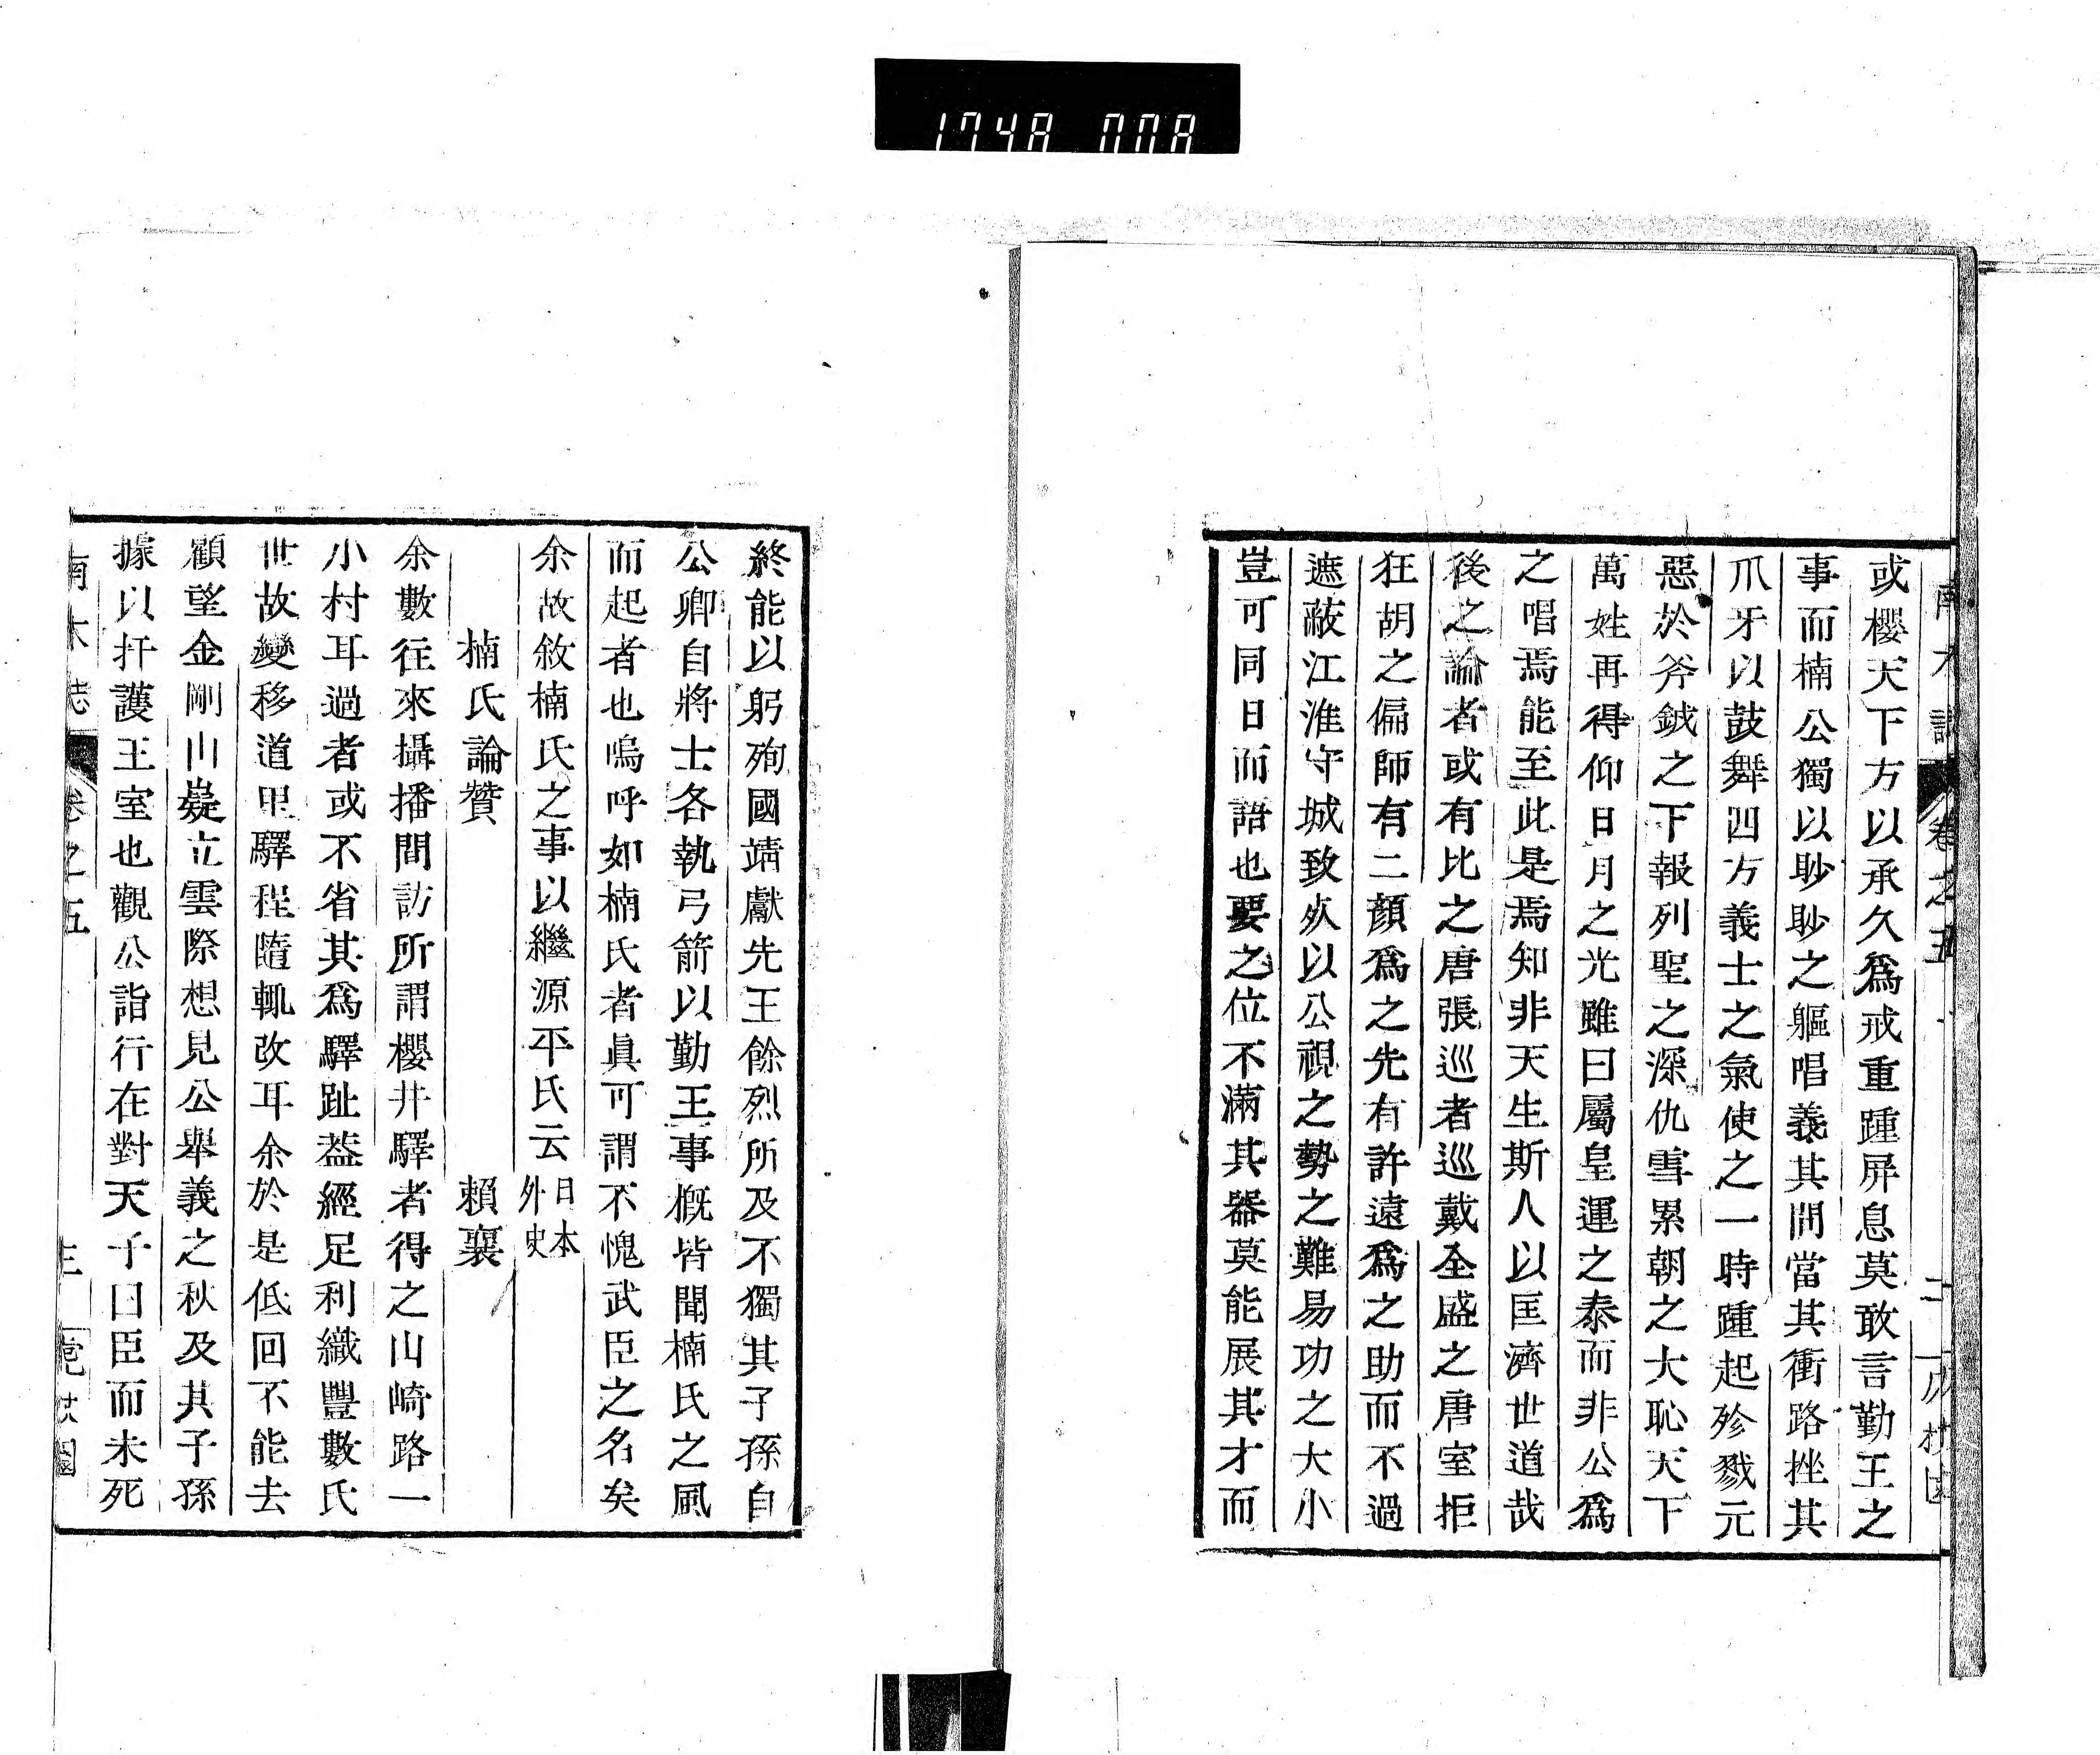 1748 008
卷之五
或櫻天下方以承久爲戒重踵屏息莫敢言勤王之
事而楠公獨以眇眇之軀唱義其間當其衝路挫其
爪牙以鼓舞四方義士之氣使之一時踵起殄戮元
惡於斧鉞之下報列聖之深仇雪累朝之大恥天下
萬姓再得仰日月之光雖曰屬皇運之泰而非公爲
之唱焉能至此是焉知非天生斯人以匡濟世道哉
後之論者或有比之唐張巡者巡戴全盛之唐室拒
狂胡之偏師有二顏爲之先有許遠爲之助而不過
遮蔽江淮守城致死以公視之勢之難易功之大小
豈可同日而語也要之位不滿其器莫能展其才而
終能以躬殉國靖獻先王餘烈所及不獨其子孫自
公卿自將士各執弓箭以勤王事概皆聞楠氏之風
而起者也嗚呼如楠氏者眞可謂不愧武臣之名矣
余故敘楠氏之事以繼源平氏云日本外史
楠氏論贊 賴襄
余數往來攝播間訪所謂櫻井驛者得之山崎路一
小村耳過者或不省其爲驛趾葢經足利織豐數氏
世故變移道里驛程隨輒改耳余於是低回不能去
顧望金剛山嶷立雲際想見公舉義之秋及其子孫
據以扞護王室也觀公詣行在對天子曰臣而未死
南木誌 卷之五